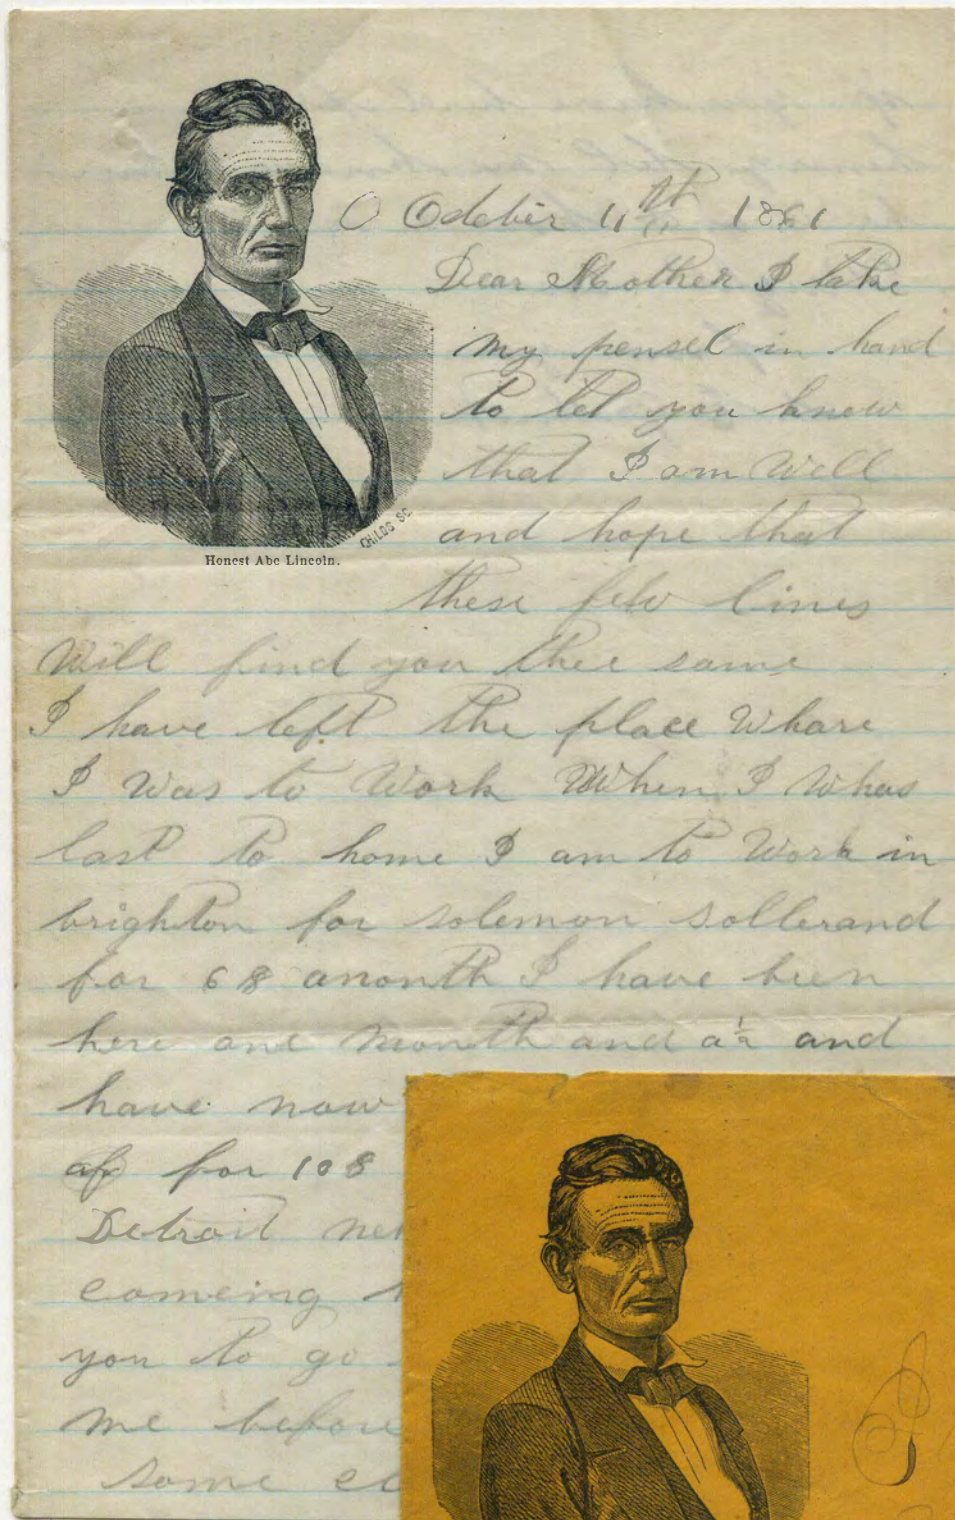 October 11th 1861
Dear Mother I take
my pensel in hand
to let you know
that I am Well
and hope that
these few lines
Will find you thee same
I have left the place Whare
I Was to Work When I Whas
last to home I am to Work in
brighton for solemon sollerand
for 6 $ amonth I have been
here one month and a ½ and
have now
for 10 $
Detroit
comeing
you to go
me before
some
CHILDS SC.
Honest Abe Lincoln.